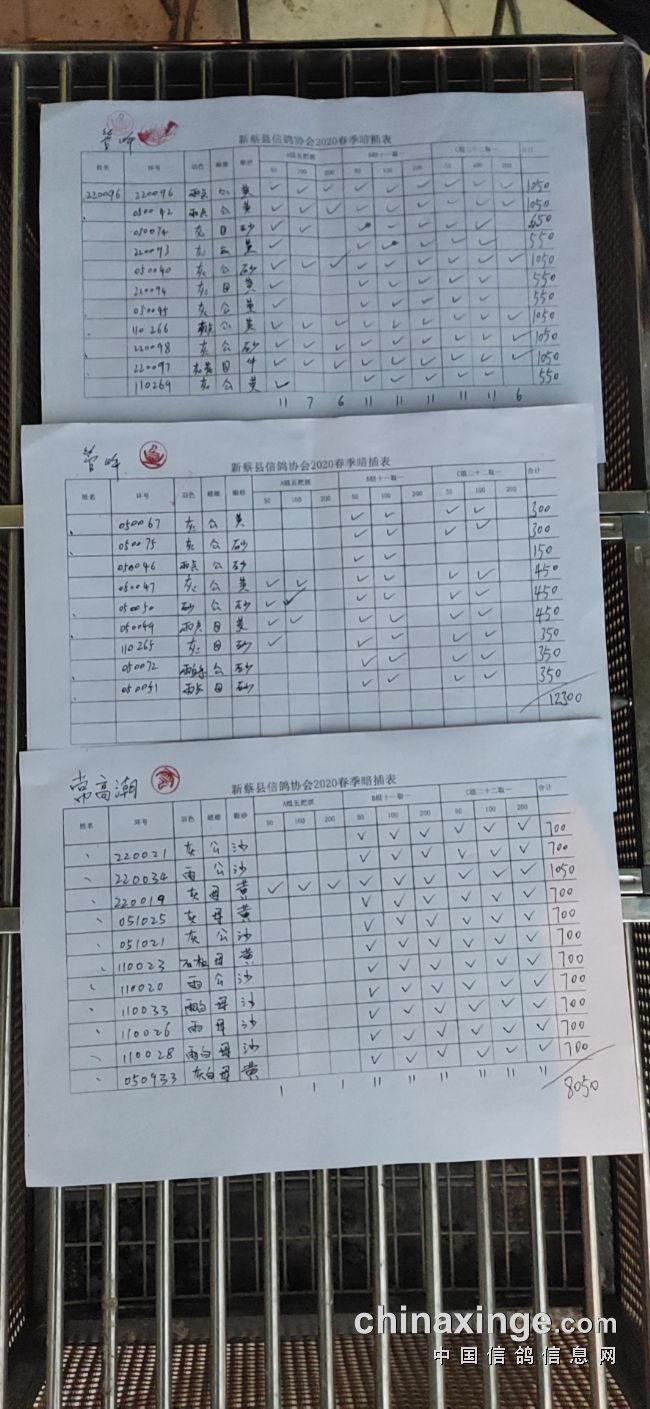 新蔡县信鸽协会2020春季暗插表
姓名 环号 羽色 雌雄 眼砂 A组五把抓 B组十一取一 C组二十二取一 合计
50 100 200 50 100 200 50 100 200
220096 220096 公 黄 ✓ ✓ ✓ ✓ ✓ ✓ ✓ ✓ ✓ 1050
050042 公 黄 ✓ ✓ ✓ ✓ ✓ ✓ ✓ ✓ ✓ 1050
050074 灰 砂 650
220093 灰 公 黄 550
050040 灰 公 砂 ✓ ✓ ✓ ✓ ✓ ✓ ✓ ✓ ✓ 1050
220094 灰 黄 550
050045 灰 公 黄 550
110266 公 黄 ✓ ✓ ✓ ✓ ✓ ✓ ✓ ✓ ✓ 1050
220098 灰 公 砂 ✓ ✓ ✓ ✓ ✓ ✓ ✓ ✓ ✓ 1050
220097 牛 ✓ ✓ ✓ ✓ ✓ ✓ ✓ ✓ ✓ 1050
110269 灰 公 黄 550
11 7 6 11 11 11 11 11 6
新蔡县信鸽协会2020春季暗插表
姓名 环号 羽色 雌雄 眼砂 A组五把抓 B组十一取一 C组二十二取一 合计
50 100 200 50 100 200 50 100 200
050067 灰 公 黄 ✓ ✓ ✓ ✓ 300
050075 灰 公 砂 ✓ ✓ ✓ ✓ 300
050046 公 砂 ✓ ✓ 150
050047 灰 公 黄 ✓ ✓ ✓ ✓ ✓ ✓ 450
050050 砂 公 砂 ✓ ✓ ✓ ✓ ✓ ✓ 450
050049 黄 ✓ ✓ ✓ ✓ ✓ ✓ 450
110265 灰 砂 ✓ ✓ ✓ ✓ ✓ 350
050072 公 砂 350
050051 砂 350
12300
常高潮
新蔡县信鸽协会2020春季暗插表
姓名 环号 羽色 雌雄 眼砂 A组五把抓 B组十一取一 C组二十二取一 合计
50 100 200 50 100 200 50 100 200
220021 灰 公 沙 ✓ ✓ ✓ ✓ ✓ ✓ 700
220034 雨 公 沙 ✓ ✓ ✓ ✓ ✓ ✓ 700
220019 灰 母 黄 ✓ ✓ ✓ ✓ ✓ ✓ ✓ ✓ ✓ 1050
051025 灰 母 黄 ✓ ✓ ✓ ✓ ✓ ✓ 700
051021 灰 公 沙 ✓ ✓ ✓ ✓ ✓ ✓ 700
110023 母 黄 ✓ ✓ ✓ ✓ ✓ ✓ 700
110020 雨 公 沙 ✓ ✓ ✓ ✓ ✓ ✓ 700
110033 雨白 母 沙 ✓ ✓ ✓ ✓ ✓ ✓ 700
110026 雨 母 沙 ✓ ✓ ✓ ✓ ✓ ✓ 700
110028 雨白 母 沙 ✓ ✓ ✓ ✓ ✓ ✓ 700
050933 灰白 母 黄 ✓ ✓ ✓ ✓ ✓ ✓ 700
1 1 1 11 11 11 11 11 11
8050
chinaxinge.com
中国信鸽信息网